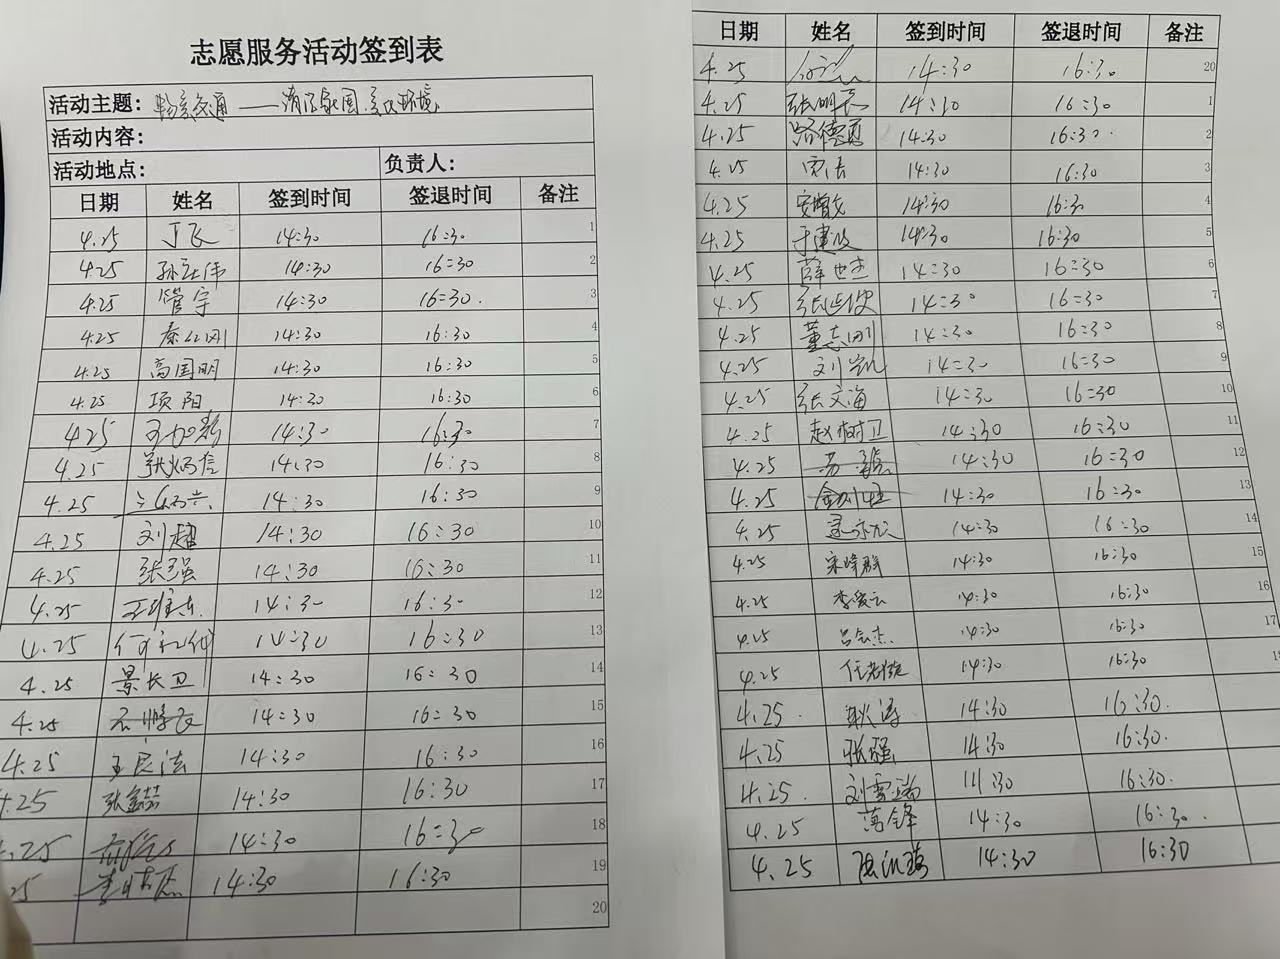 志愿服务活动签到表
活动主题: 交通——清洁家园 美化环境
活动内容:
活动地点: 负责人:
日期 姓名 签到时间 签退时间 备注
4.25 丁飞 14:30 16:30 1
4.25 孙 伟 14:30 16:30 2
4.25 管宇 14:30 16:30. 3
4.25 秦 刚 14:30 16:30 4
4.25 高国明 14:30 16:30 5
4.25 项阳 14:30 16:30 6
4.25 14:30 16:30 7
4.25 张炳信 14:30 16:30 8
4.25 14:30 16:30 9
4.25 刘超 14:30 16:30 10
4.25 张强 14:30 16:30 11
4.25 王维东 14:30 16:30 12
4.25 14:30 16:30 13
4.25 景长卫 14:30 16:30 14
4.25 14:30 16:30 15
4.25 王民法 14:30 16:30 16
4.25 张鑫喆 14:30 16:30 17
4.25 14:30 16:30 18
25 14:30 16:30 19
20
日期 姓名 签到时间 签退时间 备注
4.25 14:30 16:30 20
4.25 张明 14:30 16:30 1
4.25 路德勇 14:30 16:30 2
4.25 14:30 16:30 3
4.25 安 14:30 16:30 4
4.25 于建波 14:30 16:30 5
4.25 薛世杰 14:30 16:30 6
4.25 张 14:30 16:30 7
4.25 董志刚 14:30 16:30 8
4.25 刘凯 14:30 16:30 9
4.25 张文海 14:30 16:30 10
4.25 赵树卫 14:30 16:30 11
4.25 14:30 16:30 12
4.25 14:30 16:30 13
4.25 14:30 16:30 14
4.25 宋峰 14:30 16:30 15
4.25 李爱云 14:30 16:30 16
4.25 吕会杰 14:30 16:30 17
4.25 任 14:30 16:30
4.25. 耿涛 14:30 16:30.
4.25 张强 14:30 16:30.
4.25. 刘雪瑞 14:30 16:30.
4.25 万锋 14:30 16:30.
4.25 14:30 16:30